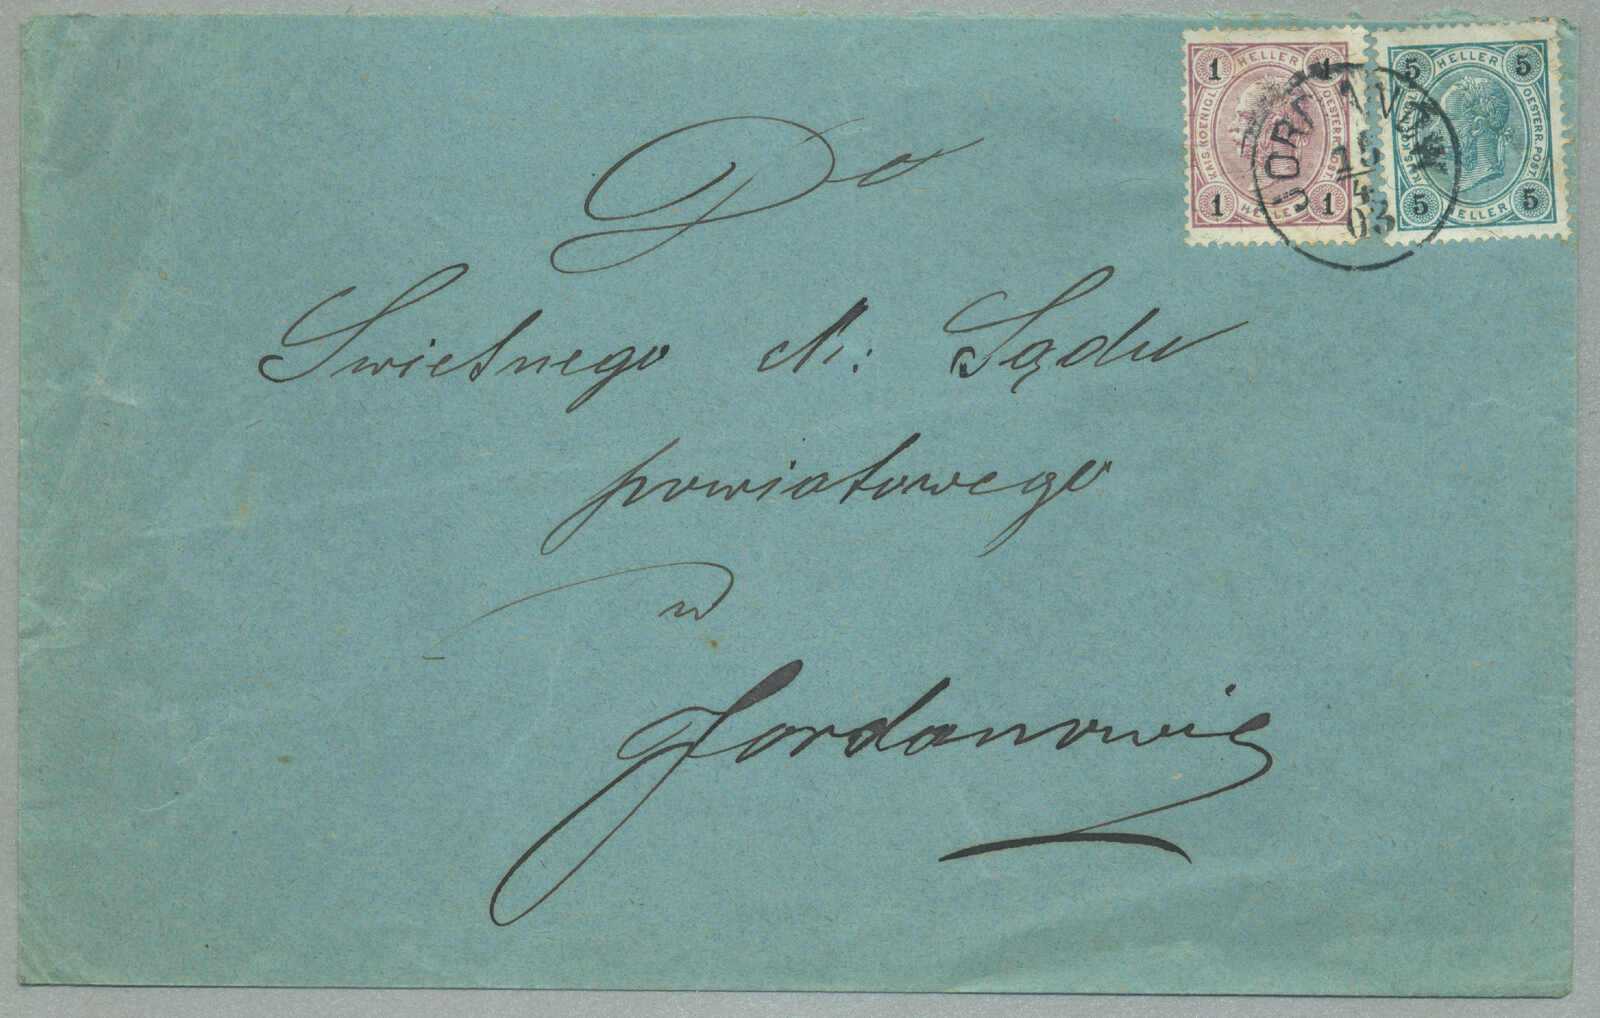 1 HELLER 1
KAIS. KOENIGL. OESTERR. POST
1 HELLER 1
5 HELLER 5
KAIS. KOENIGL. OESTERR. POST
5 HELLER 5
JORDANÓW
15
4
03
Do
Swietnego Sądu
powiatowego
w
Jordanowie